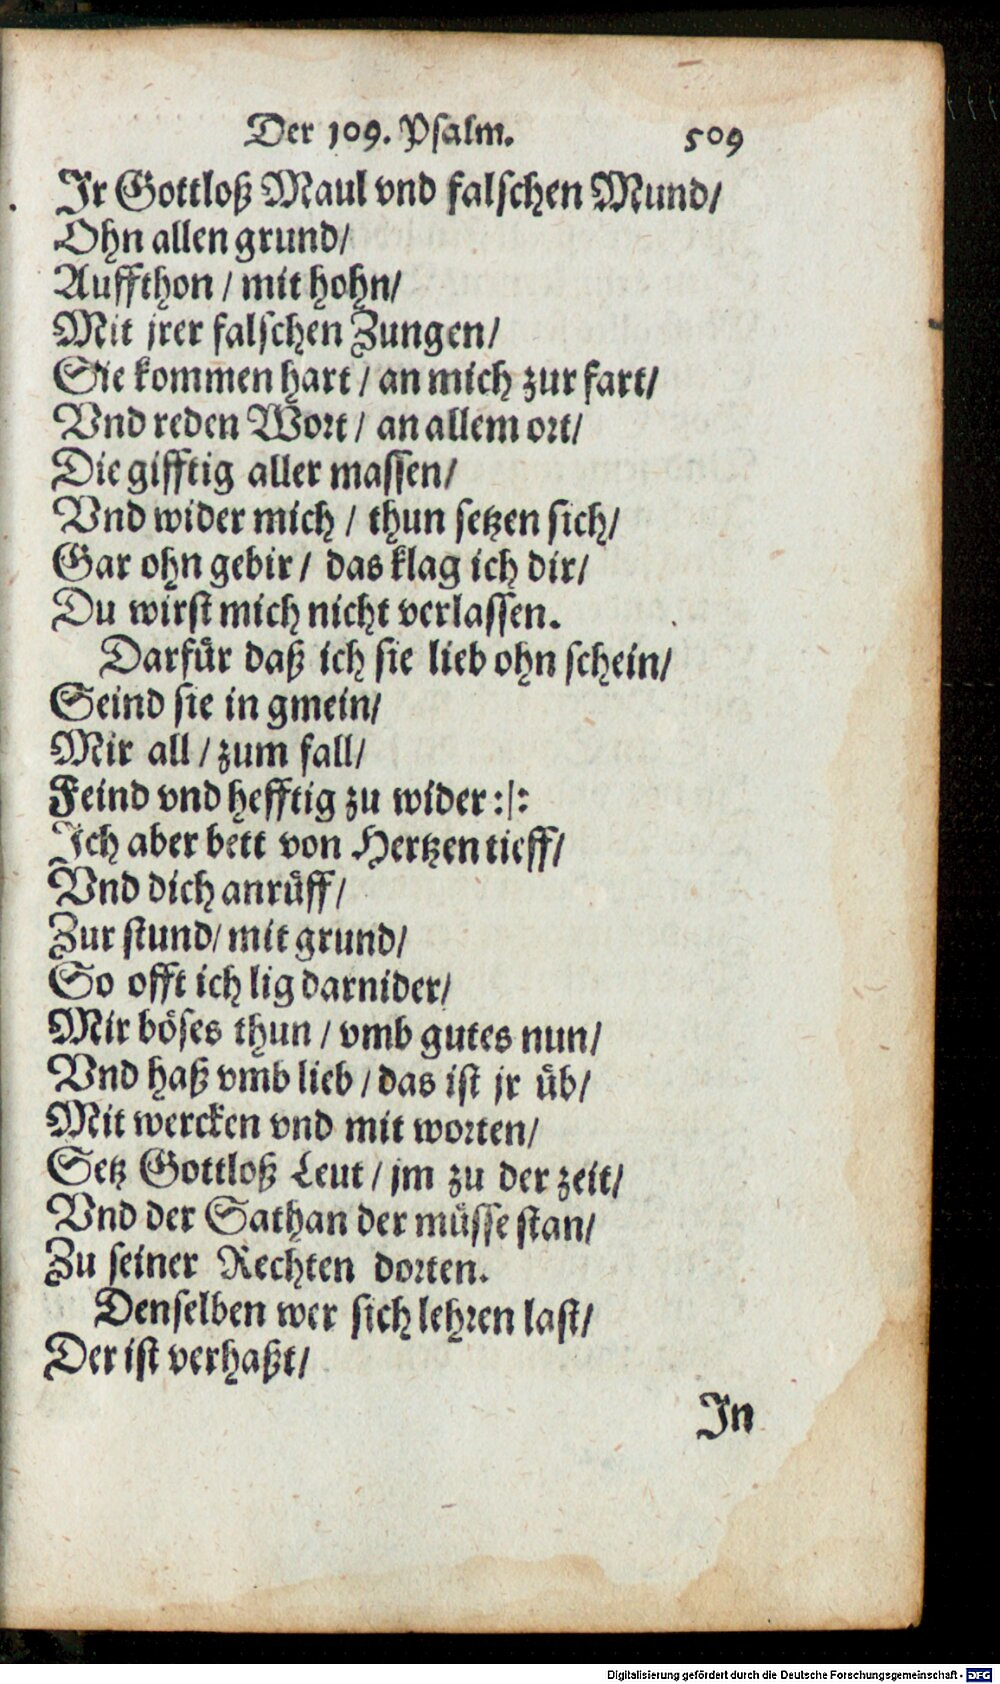 Der 109. Psalm. 509
Ir Gottloß Maul vnd falschen Mund/
Ohn allen grund/
Auffthon / mit hohn/
Mit jrer falschen Zungen/
Sie kommen hart / an mich zur fart/
Vnd reden Wort / an allem ort/
Die gifftig aller massen/
Vnd wider mich / thun setzen sich/
Gar ohn gebir / das klag ich dir/
Du wirst mich nicht verlassen.
Darfür daß ich sie lieb ohn schein/
Seind sie in gmein/
Mir all / zum fall/
Feind vnd hefftig zu wider :|:
Ich aber bett von Hertzen tieff/
Vnd dich anrüff/
Zur stund/ mit grund/
So offt ich lig darnider/
Mir böses thun / vmb gutes nun/
Vnd haß vmb lieb / das ist jr üb/
Mit wercken vnd mit worten/
Setz Gottloß Leut / jm zu der zeit/
Vnd der Sathan der müsse stan/
Zu seiner Rechten dorten.
Denselben wer sich lehren last/
Der ist verhaßt/
In
Digitalisierung gefördert durch die Deutsche Forschungsgemeinschaft - DFG